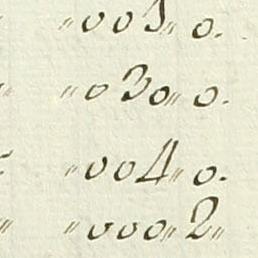 "005" 0.
" 030" 0.
"004" 0.
" 0002"